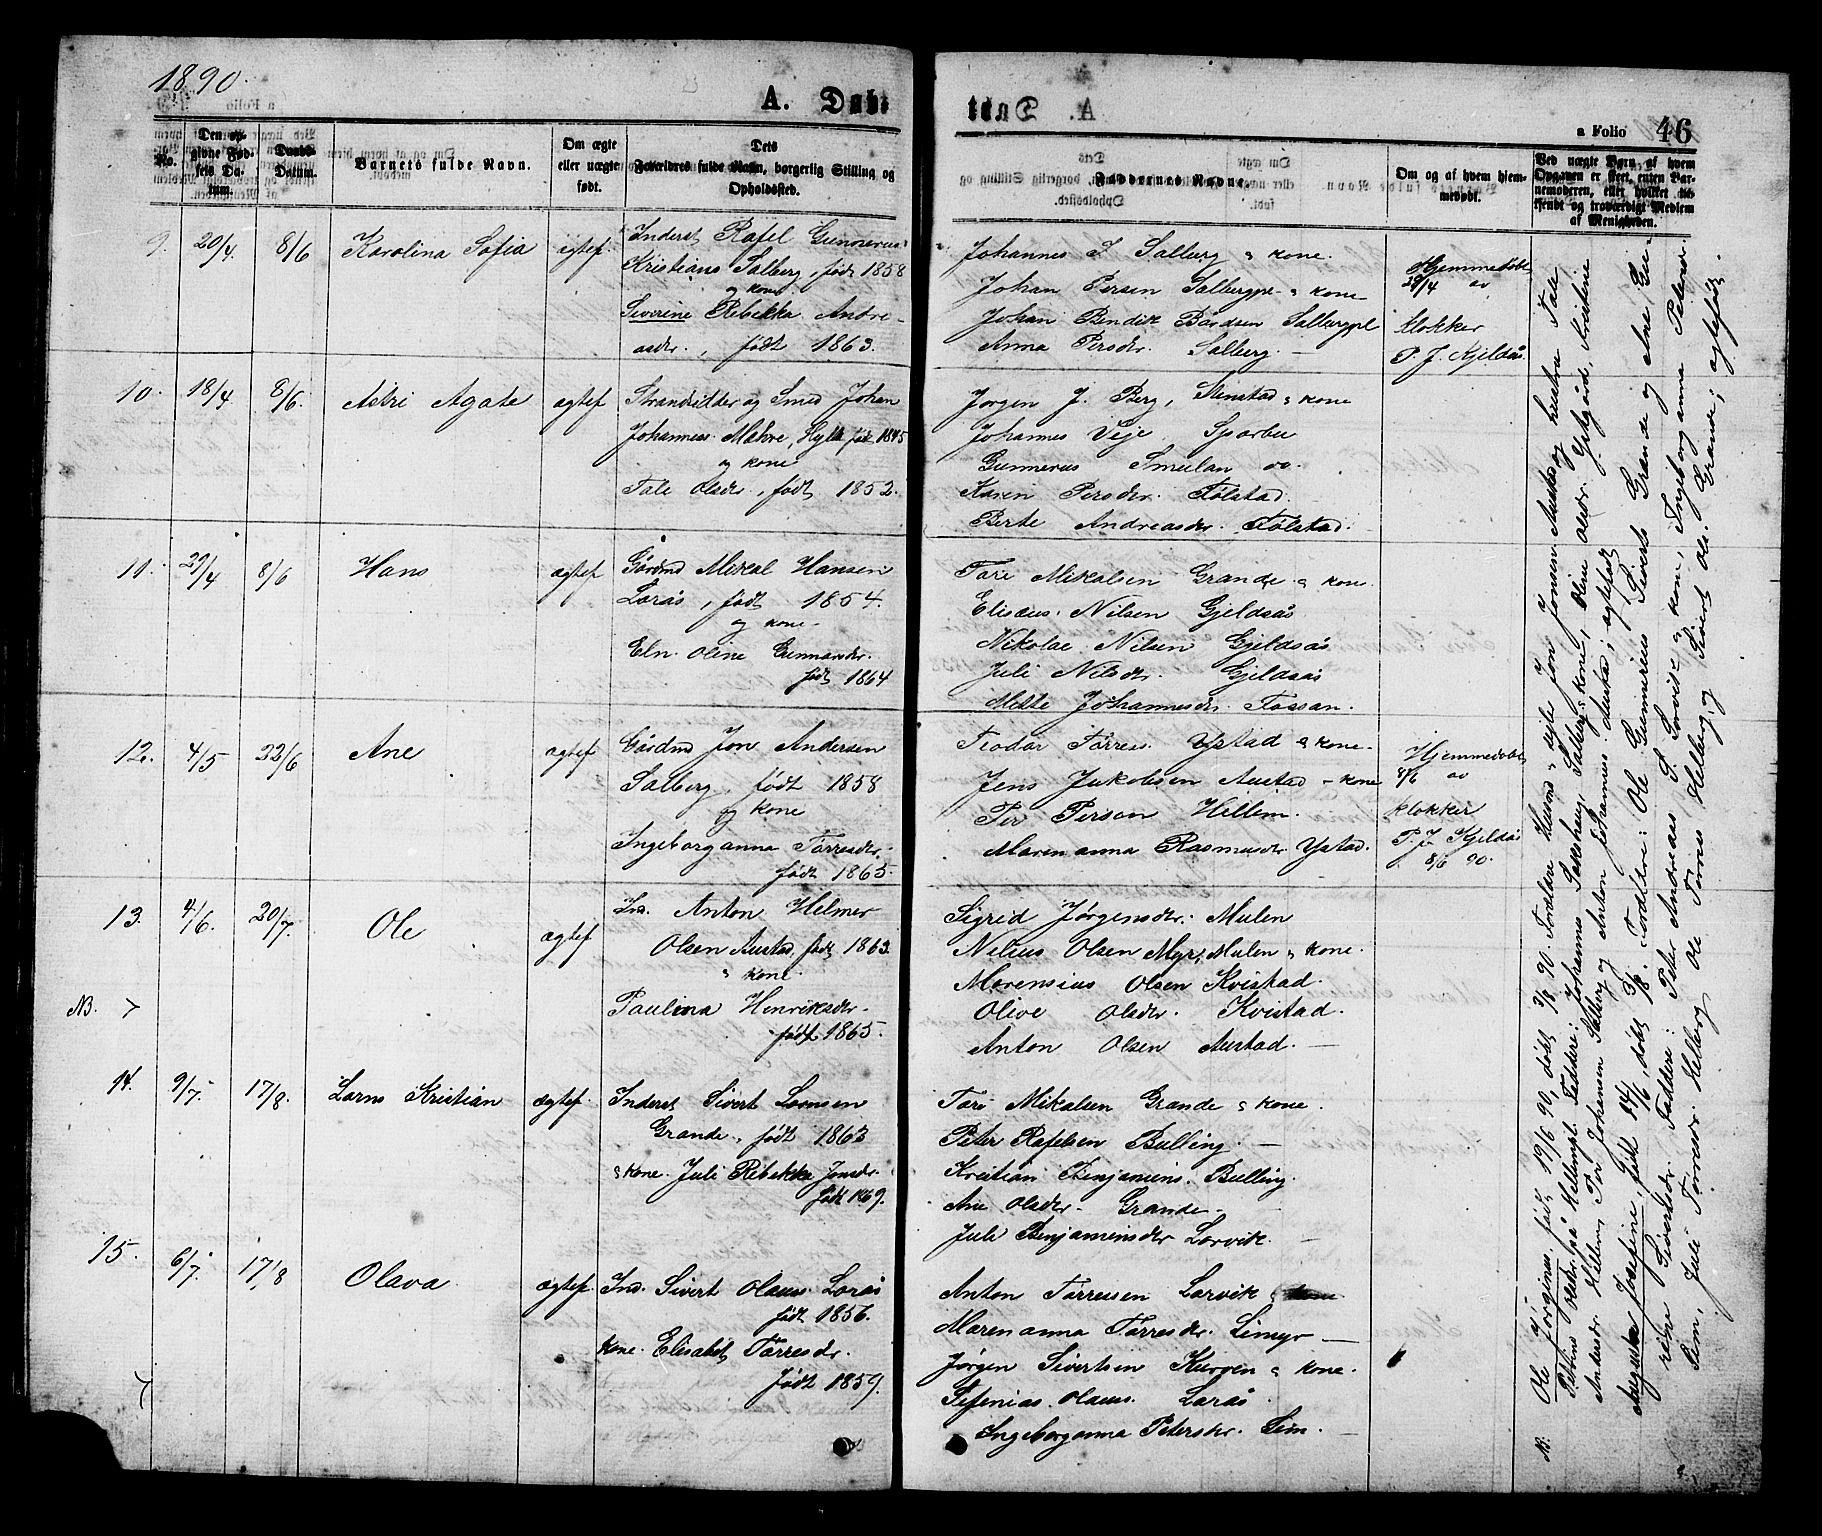 1890.
A. Døbt
a Folio 46
No.
Den opgivne Fødsels Datum.
Daabs Datum.
Barnets fulde Navn.
Om ægte eller uægte født.
Dets Forældres fulde Navn, borgerlig Stilling og Opholdssted.
Faddernes Navne.
Om og af hvem hjemmedøbt.
Ved uægte Børn, af hvem Opgaven er skeet, enten Barnemoderen, eller hvilket
kjendt og troværdigt Medlem
af Menigheden.
9. 20/4. 8/6 Karolina Sofia egtef.
Inderst Rafel Gunnerus
Kristians Salberg, født 1858
og kone
Siverine Rebekka Andre-
asdr., født 1863.
Johannes J. Salberg & kone.
Johan Persen Salbergpl & kone
Johan Bendik Bårdsen Salbergpl
Anna Persdr. Salberg. —
Hjemmedøbt
29/4 av
klokker
P. J. Kjeldås.
10. 18/4 8/6. Astri Agate egtef
Strandsidder og Smed Johan
Johanness. Mæhre, Hylla født 1845
og kone
Tale Olsdr., født 1852.
Jørgen J. Berg, Stenstad & kone
Johannes Veje, Sparbu
Gunnerus Smulan oo.
Karen Persdr. Følstad.
Berte Andreasdr. Følstad.
11. 29/4 8/6 Hans egtef
Gårdmd Mikal Hansen
Lorås, født 1854.
og kone
Eln. Oline Gunnarsdr.
født 1864
Tore Mikalsen Grande & kone.
Elisæus Nilsen Gjeldsås
Nikolai Nilsen Gjeldsås
Juli Nilsdr. Gjeldsås
Mette Johannesdr. Fossan.
12. 4/5 22/6 Ane egtef
Gårdmd Jon Andersen
Salberg, født 1858
og kone
Ingeborganna Tørresdr.
født 1865.
Teodor Tørress. Ystad & kone.
Jens Jakobsen Austad & kone
Per Person Hellem.
Maren anna Rasmusdr. Ystad.
Hjemmedøbt
8/6 av
klokker
P. J. Kjeldås
8/6 90.
13. 4/6. 20/7. Ole egtef
Ins. Anton Helmer
Olsen Austad, født 1863.
& kone.
Paulina Henriksdr.
født 1865.
Sigrid Jørgensdr. Mulen
Nelius Olsen Myr, Mulen & kone.
Morensius Olsen Kvistad.
Olive Olsdr. Kvistad.
Anton Olsen Austad. —
NB.
14. 9/7. 17/8. Lorns Kristian egtef.
Inderst Sivert Lornsen
Grande, født 1863
& kone. Juli Rebekka Jonsdr.
født 1869.
Tore Mikalsen Grande & kone.
Peter Rafelsen Bulling. —
Kristian Benjamins. Bulling.
Ane Olsdr. Grande. —
Juli Benjaminsdr Lorvik. —
15. 6/7. 17/8 Olava egtef.
Ind. Sivert Olauss. Lorås
født 1856.
kone. Elisabet Tørresdr.
født 1859.
Anton Tørresen Lorvik & kone
Maren anna Tørresdr. Limyr —
Jørgen Sivertsen Kurgen & kone.
Sefenias. Olauss. Lorås
Ingeborganna Petersdr. Sem. —
NB. Ole Jørginus, født 19/6 90, døbt 3/8 90. Forældre Husmd & sejle Jon Jonsen Austad og hustru Tale
Petrine Olsdr. på Hellempl. Faddere: Johannes Sakshaug, Salberg & kone, Oline Olsdr. Ystgård, Kristine
Andersdr. Hellem, Per Johansen Salberg og Anton Johannes. Austad; egtefødt
Augusta Josefine, født 14/6, døbt 3/8. Forældre: Ole Gunnerius Siverts Grande og Ane Gu-
rine Sivertsdr. Faddere: Peter Andreas S. Lorvik & kone, Ingeborganna Petersdr.
Sem, Juli Tørresdr. Helberg, Ole Tørres Helberg og Sivert Ols. Grande; egtefødt.